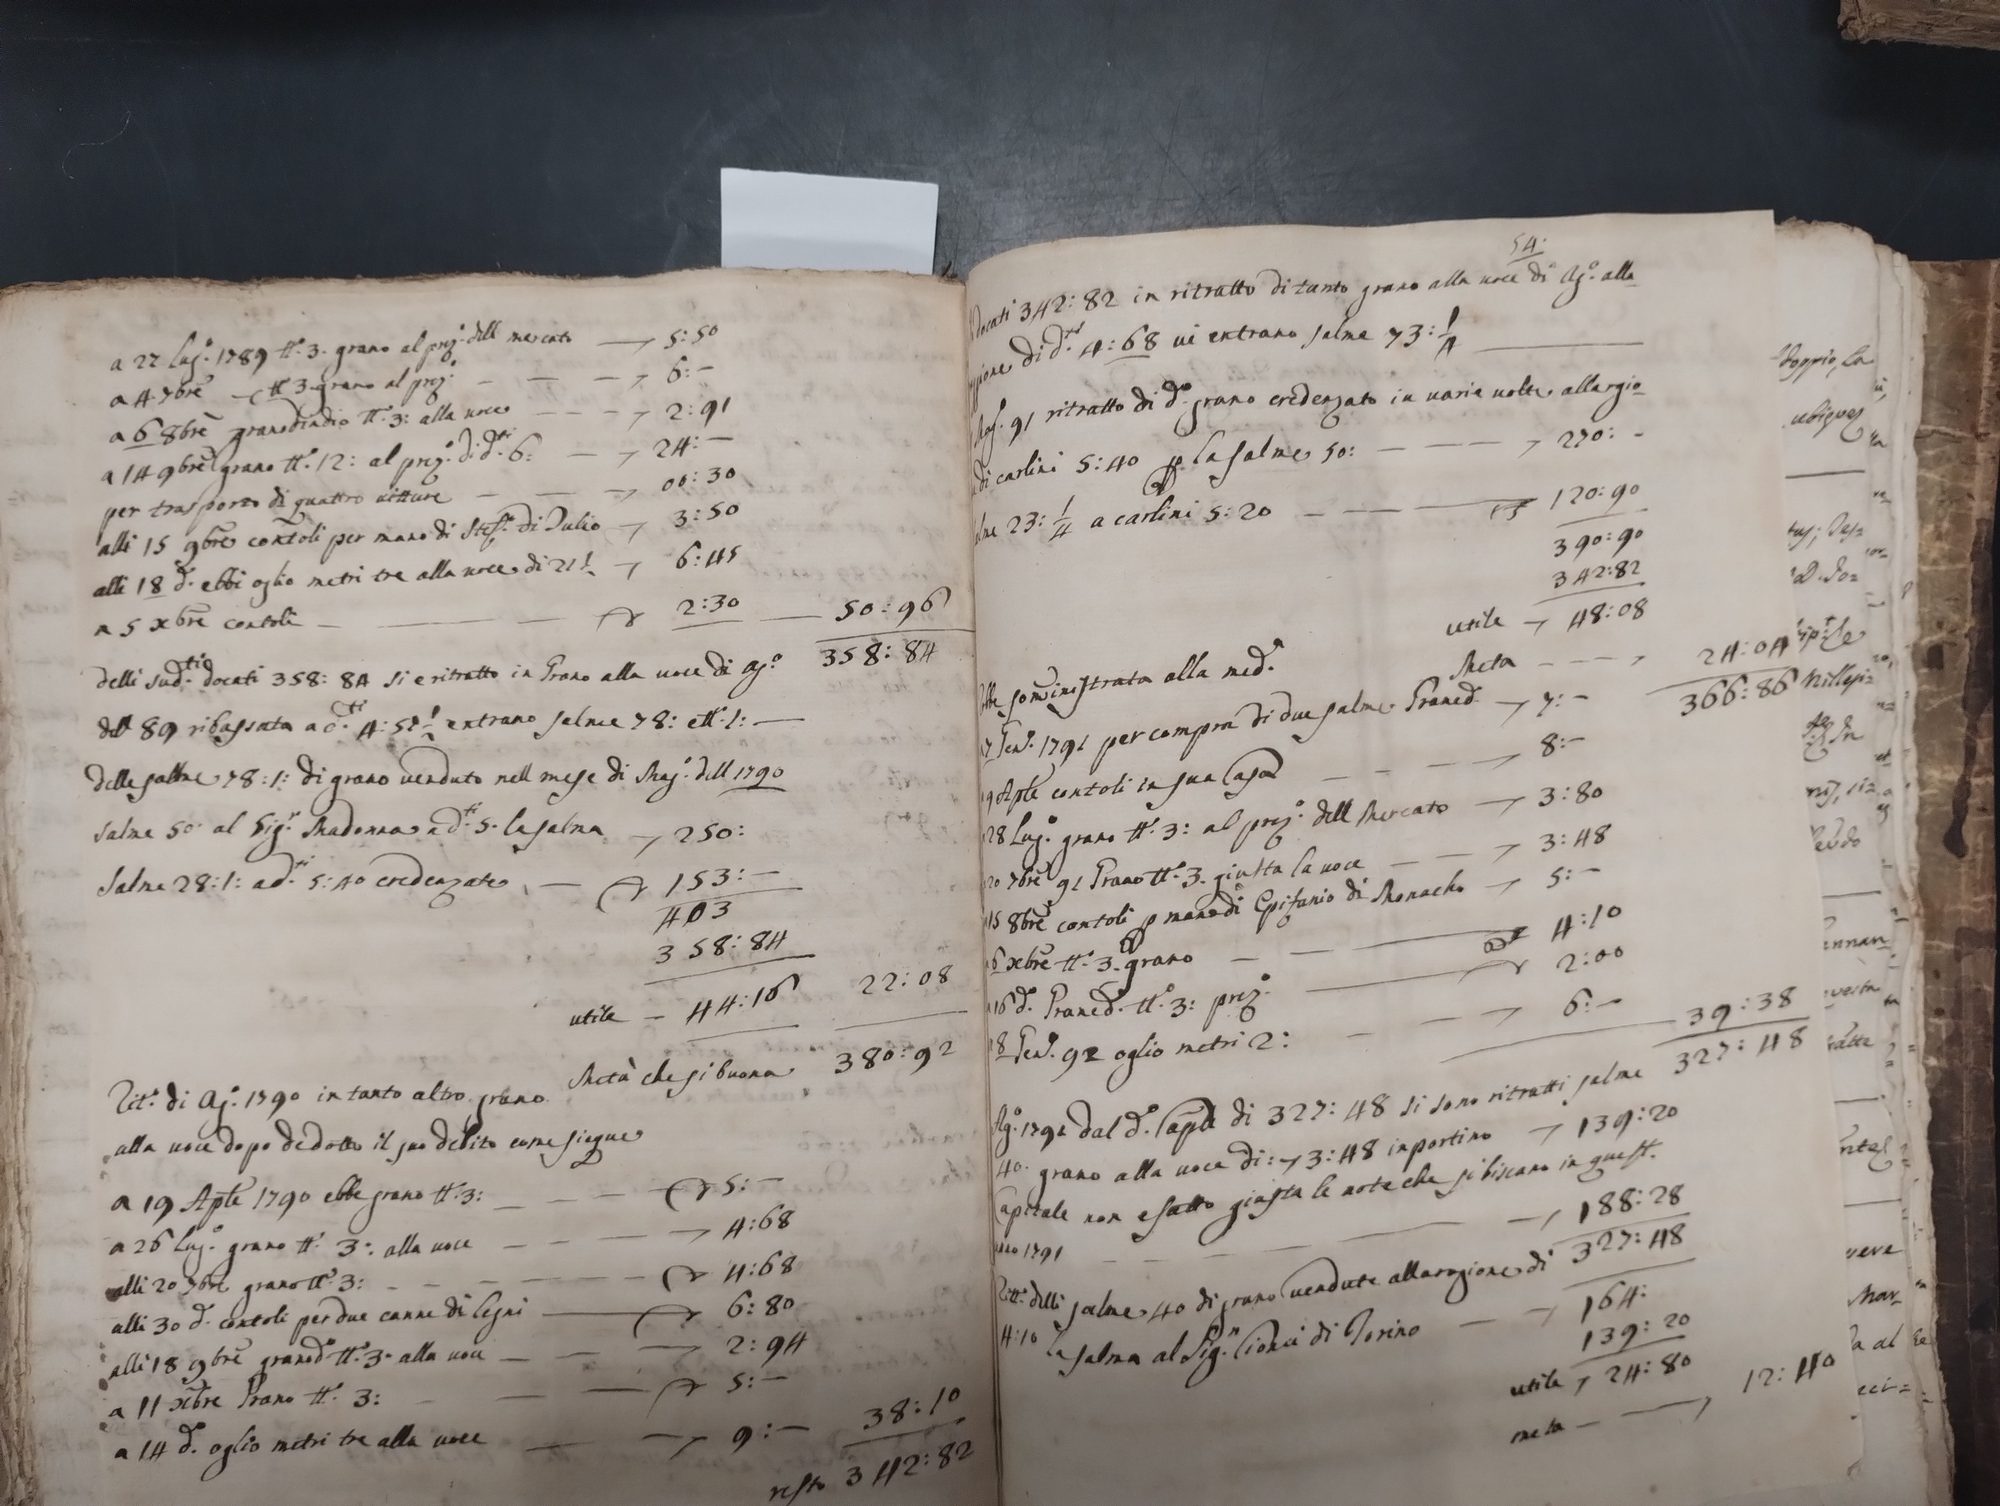 a 22 Lug.º 1789 tt.ª 3. grano al prez.º dell mercato → 5:50
a 4 7bre tt.ª 3 grano al prez.º → 6:—
a 6 8bre grano d'indio tt.ª 3: alla voce → 2:91
a 14 9bre grano tt.ª 12: al prez.º di d.ti 6: → 24:—
per trasporto di quattro vitture → 00:30
alli 15 9bre contoli per mano di Stef.º di Iulio → 3:50
alli 18 d.º ebbi oglio metri tre alla voce di 21 ½ → 6:45
a 5 xbre contoli → 2:30 — 50:96
358:84
delli sud.ti docati 358:84 si è ritratto in Grano alla voce di Ag.º
dell 89 ribassata a d.ti 4:57 ½ entrano salme 78: e tt.ª 1:—
delle salme 78:1: di grano venduto nell mese di Mag.º dell 1790
salme 50: al Sig.r Madonna a d.ti 5. la salma → 250:
Salme 28:1: a d.ti 5:40 credenzate → 153:—
403
358:84
utile — 44:16 22:08
Metà che si buona 380:92
Rit.º di Ag.º 1790 in tanto altro grano
alla voce dopo dedotto il suo debito come siegue
a 19 Aple 1790 ebbe grano tt.ª 3: → 5:—
a 26 Lug.º grano tt.ª 3: alla voce → 4:68
alli 20 7bre grano tt.ª 3: → 4:68
alli 30 d.º contoli per due canne di legni → 6:80
alli 18 9bre grano d.º tt.ª 3: alla voce → 2:94
a 11 xbre Grano tt.ª 3: → 5:—
a 14 d.º oglio metri tre alla voce → 9:— 38:10
resto 342:82
54:
Docati 342:82 in ritratto di tanto grano alla voce di Ag.º alla
ragione di d.ti 4:68 vi entrano salme 73: ¼
Mag.º 91 ritratto di d.º grano credenzato in varie volte alla ragio=
di carlini 5:40 p la salme 50: → 270:—
salme 23: ¼ a carlini 5:20 → 120:90
390:90
342:82
utile → 48:08
Meta → 24:04
366:86
Ebbe somministrata alla med.ª
7 Gen.º 1791 per compra di due salme Graned → 7:—
19 Aple contoli in sua Casa → 8:—
28 Lug.º grano tt.ª 3: al prez.º dell Mercato → 3:80
20 7bre 91 Grano tt.ª 3. giusta la voce → 3:48
15 8bre contoli p mano di Epifanio di Monacho → 5:—
6 xbre tt.ª 3. grano → 4:10
16 d.º Graned.º tt.ª 3: prez.º → 2:00
8 Gen.º 92 oglio metri 2: → 6:— 39:38
327:48
Ag.º 1791 dal d.º Caple di 327:48 si sono ritratti salme
40. grano alla voce di: → 3:48 inportino → 139:20
Capitale non esatto giusta le note che si biscano in quest.
anno 1791 → 188:28
327:48
Ritt.º delli salme 40 di grano vendute alla ragione di
4:10 la salma al Sig.n Cionci di Torino → 164:
139:20
utile → 24:80
meta → 12:40